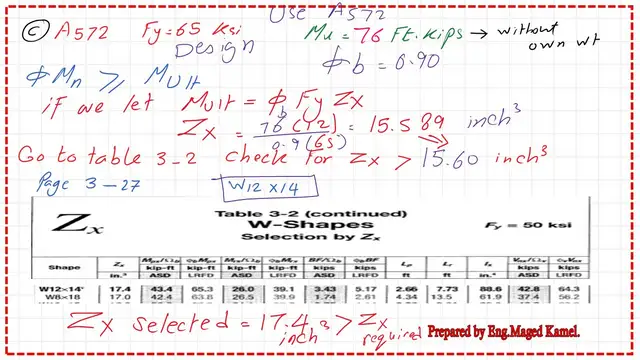 Use A572
(c) A572 Fy = 65 ksi
Design
Mu = 76 FT. Kips → without own wt
Φb = 0.90
ΦMn ≥ Mult
if we let Mult = Φb Fy Zx
Zx = 76 (12) / 0.9 (65) = 15.589 inch³
Go to table 3-2 check for Zx > 15.60 inch³
Page 3-27
W12 x 14
Zx
Table 3-2 (continued)
W-Shapes
Selection by Zx
Fy = 50 ksi
Shape Zx Mpx/Ωb ΦbMpx Mrx/Ωb ΦbMrx BF/Ωb ΦbBF Lp Lr Ix Vnx/Ωv ΦvVnx
kip-ft kip-ft kip-ft kip-ft kips kips kips kips
in.³ ASD LRFD ASD LRFD ASD LRFD ft ft in.⁴ ASD LRFD
W12×14 17.4 43.4 65.3 26.0 39.1 3.43 5.17 2.66 7.73 88.6 42.8 64.3
W8×18 17.0 42.4 63.8 26.5 39.9 1.74 2.61 4.34 13.5 61.9 37.4 56.2
Zx selected = 17.4 inch³ > Zx required
Prepared by Eng.Maged Kamel.